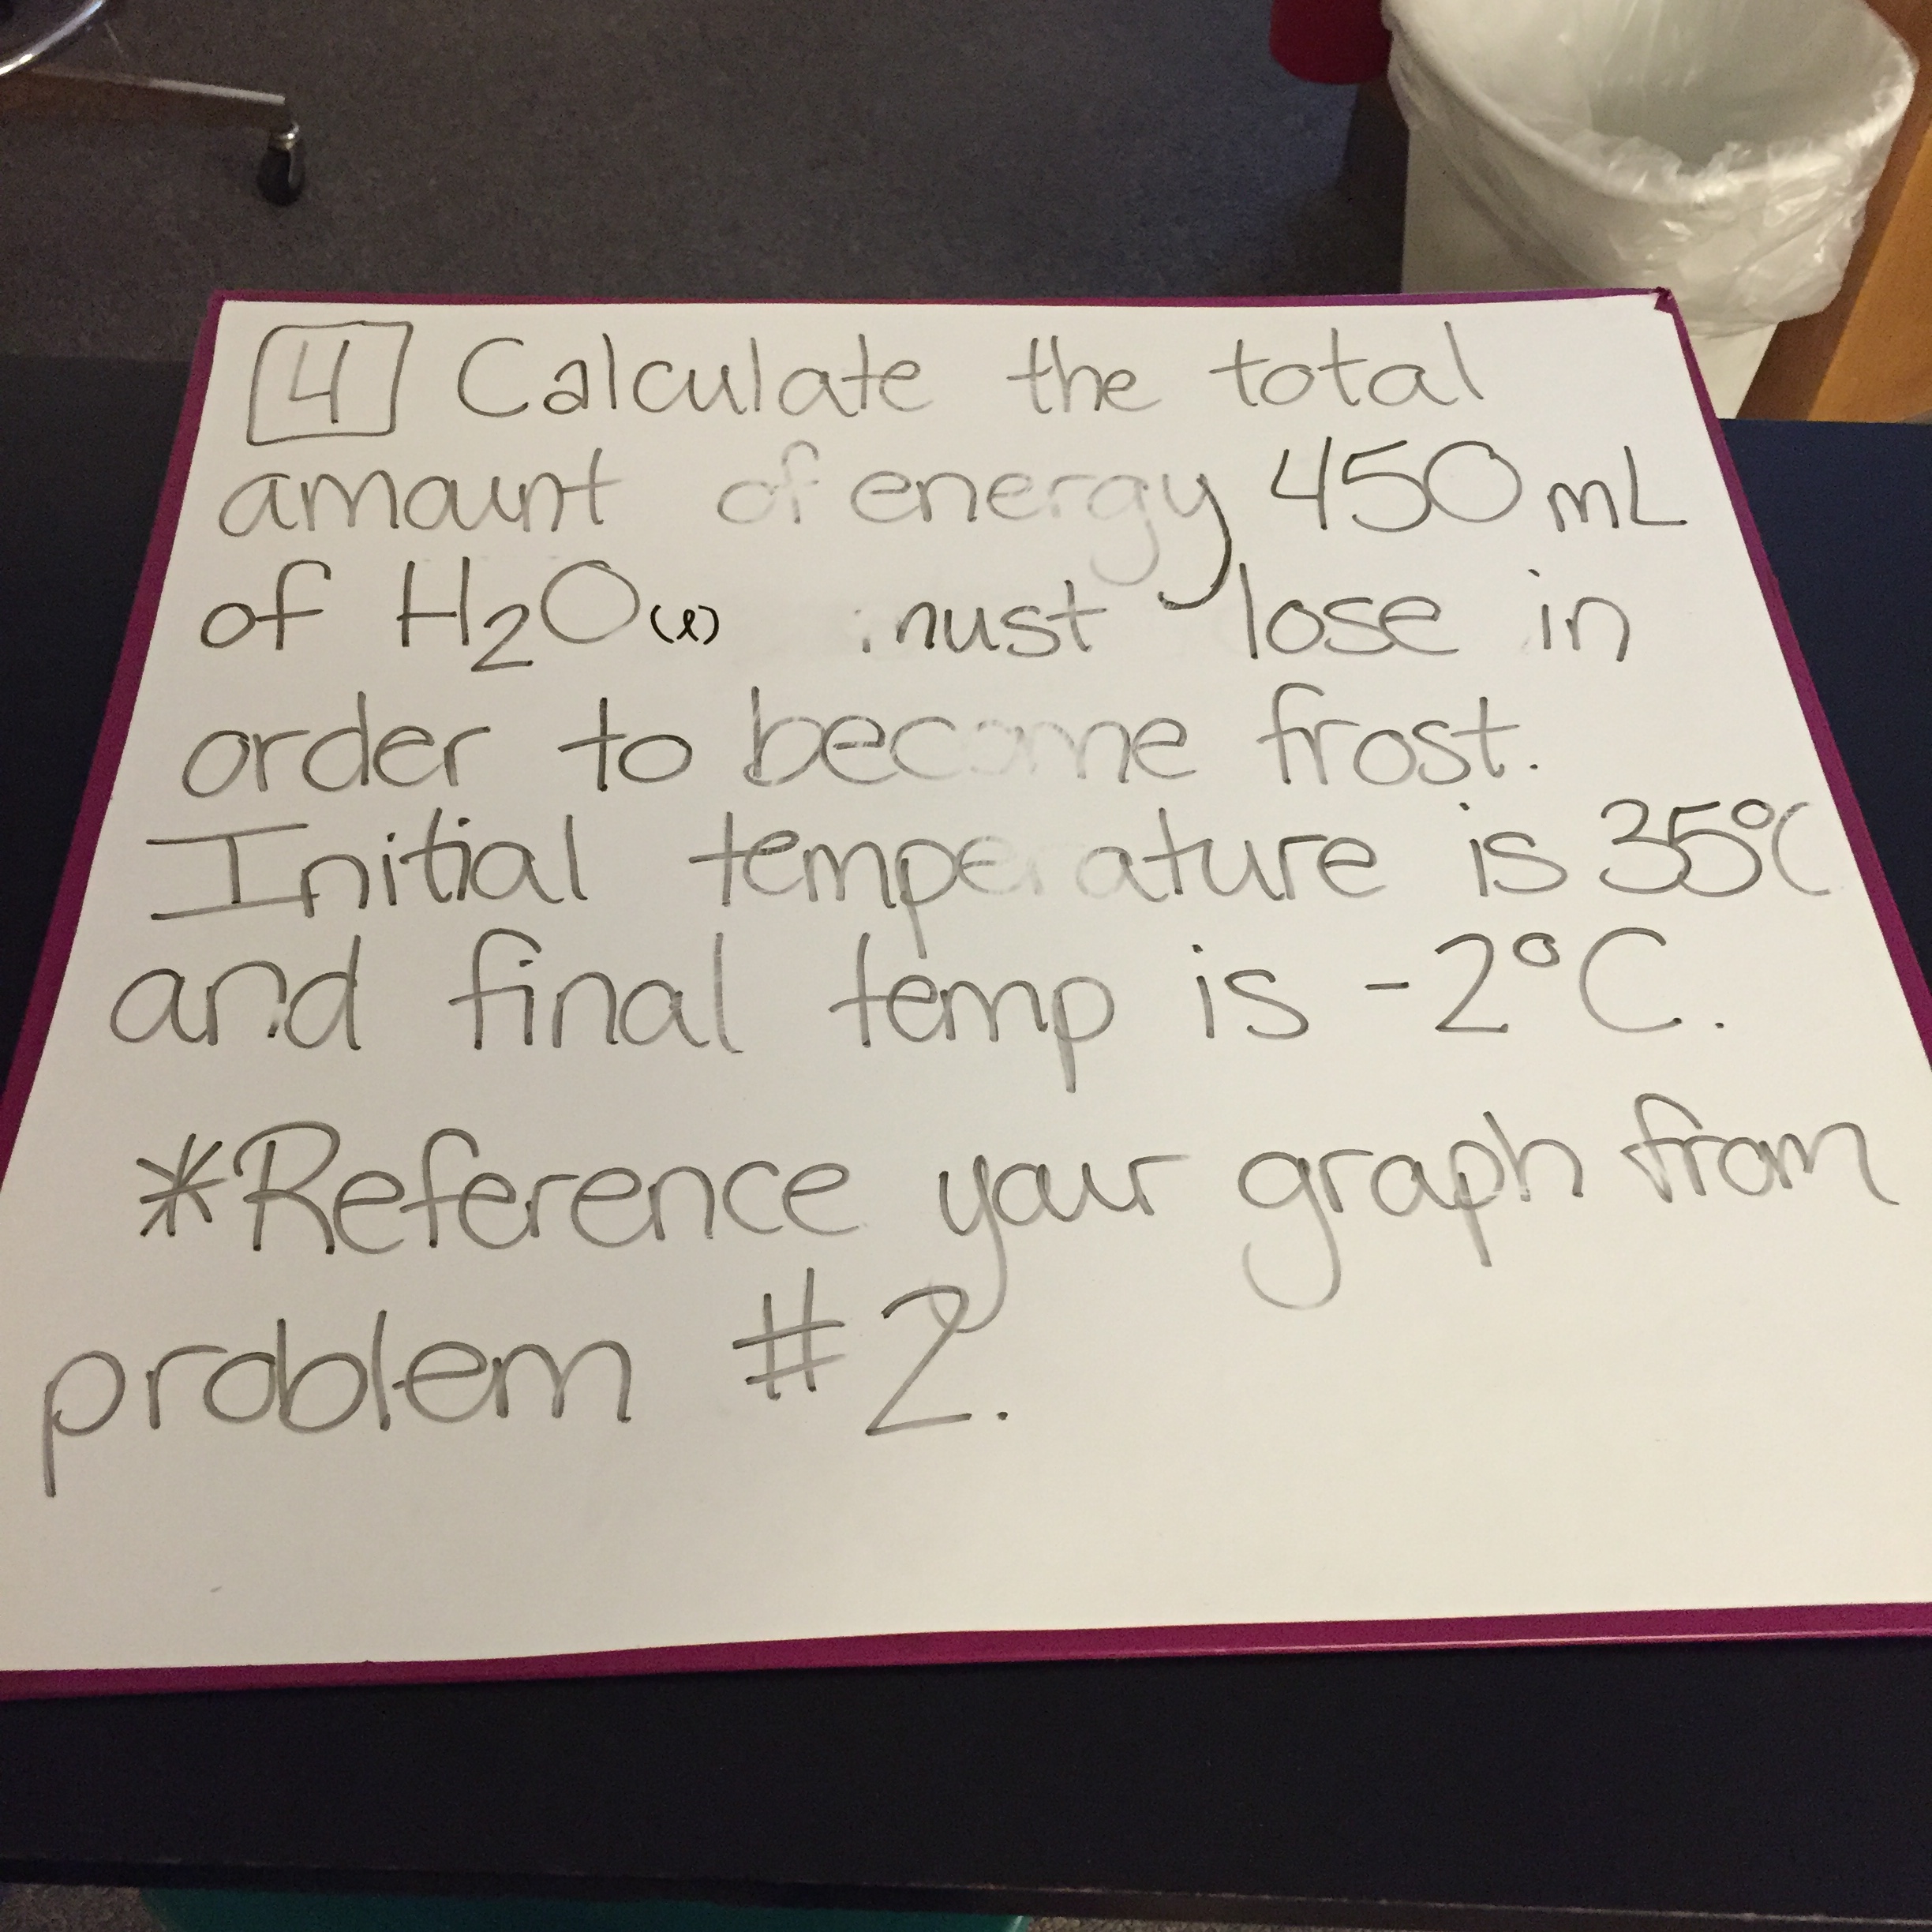 4 Calculate the total
amount of energy 450 mL
of H₂O(l) must lose in
order to become frost.
Initial temperature is 35°C
and final temp is -2°C.
*Reference your graph from
problem #2.